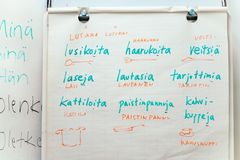 Minä
Sinä
Hän
Olenk
Oletk
LUSIKKA HAARUKKA VEITSI
lusikoita haarukoita veitsiä
LASI LAUTANEN
laseja lautasia tarjottimia
KATTILA
kattiloita paistinpannuja kahvi-
kuppeja
PAISTINPANNU
KAHVIKUPPI